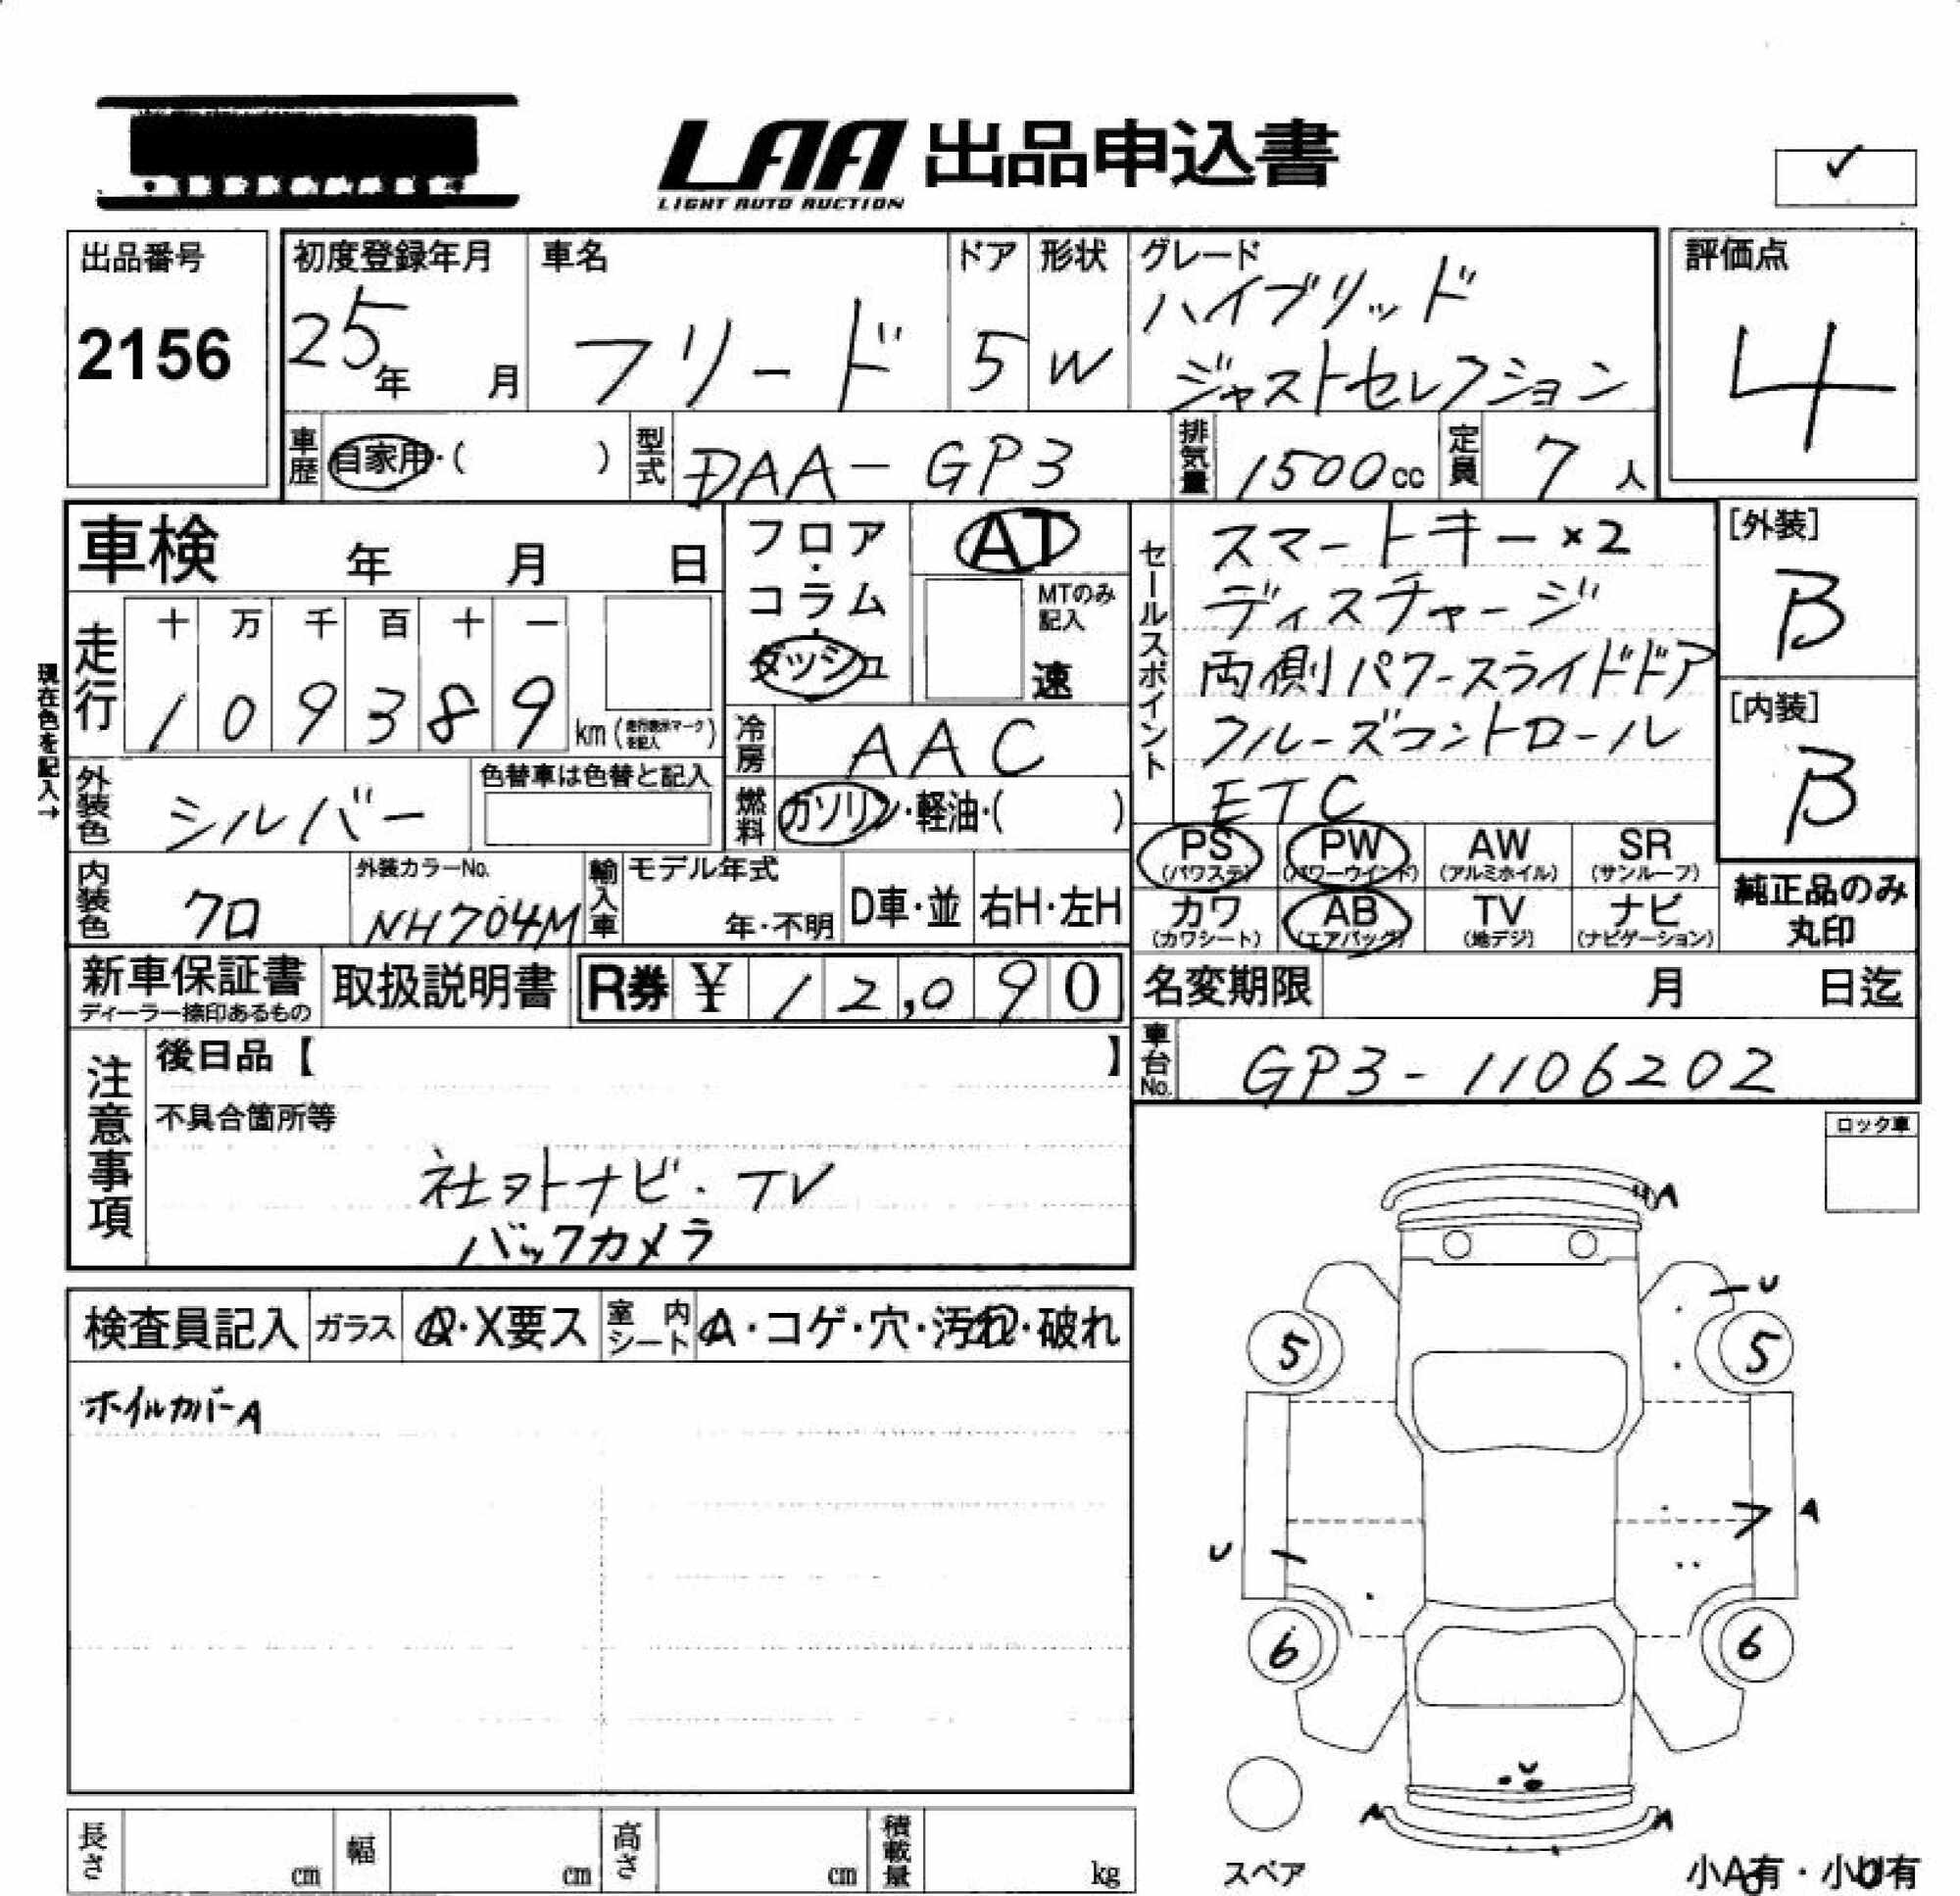 LAA 出品申込書
LIGHT AUTO AUCTION
✓
出品番号
2156
初度登録年月
25年 月
車名
フリード
ドア
5
形状
W
グレード
ハイブリッド
ジャストセレクション
評価点
4
車歴 自家用・( )
型式 DAA-GP3
排気量 1500cc
定員 7人
車検 年 月 日
フロア・
コラム・
ダッシュ
AT
MTのみ
記入
速
セールスポイント
スマートキー×2
ディスチャージ
両側パワースライドドア
クルーズコントロール
ETC
[外装]
B
[内装]
B
現在色を記入→
走行
十 万 千 百 十 一
1 0 9 3 8 9 km (走行表示マークを記入)
冷房 AAC
外装色 シルバー
色替車は色替と記入
燃料 ガソリン・軽油・( )
PS
(パワステ)
PW
(パワーウインド)
AW
(アルミホイル)
SR
(サンルーフ)
カワ
(カワシート)
AB
(エアバッグ)
TV
(地デジ)
ナビ
(ナビゲーション)
純正品のみ
丸印
内装色 クロ
外装カラーNo.
NH704M
輸入車
モデル年式
年・不明
D車・並
右H・左H
新車保証書
ディーラー捺印あるもの
取扱説明書
R券 ¥ 12,090
名変期限 月 日迄
車台No. GP3-1106202
注意事項
後日品【 】
不具合箇所等
社外ナビ・TV
バックカメラ
ロック車
検査員記入
ガラス
A・X要ス
室内
シート
A・コゲ・穴・汚れ・破れ
ホイルカバーA
A
U
5 5
A
U
6 6
U
A A
スペア
小A有・小U有
長さ cm
幅 cm
高さ cm
積載量 kg